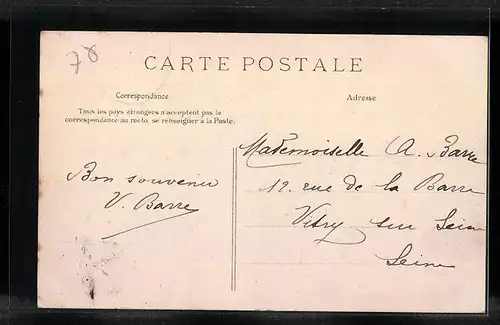 78
CARTE POSTALE
Correspondance
Adresse
Tous les pays étrangers n'acceptent pas la
correspondance au recto, se renseigner à la Poste.
Bon souvenir
V. Barre
Mademoiselle A. Barre
12. rue de la Barre
Vitry sur Seine
Seine